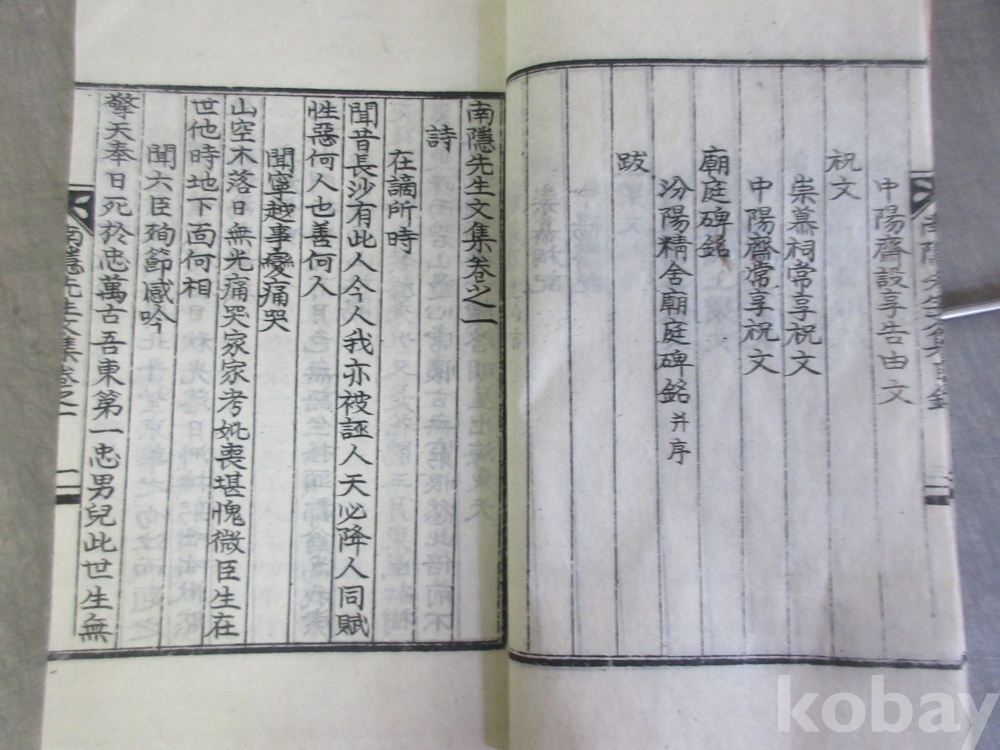 中陽齋設享告由文
祝文
崇慕祠常享祝文
中陽齋常享祝文
廟庭碑銘
汾陽精舍廟庭碑銘 并序
跋
南隱先生文集卷之一
詩
在謫所時
聞昔長沙有此人今人我亦被誣人天必降人同賦
性惡何人也善何人
聞寧越事變痛哭
山空木落日無光痛哭家家考妣喪堪愧微臣生在
世他時地下面何相
聞六臣殉節感吟
擎天奉日死於忠萬古吾東第一忠男兒此世生無
南隱先生文集卷之一
一
kobay